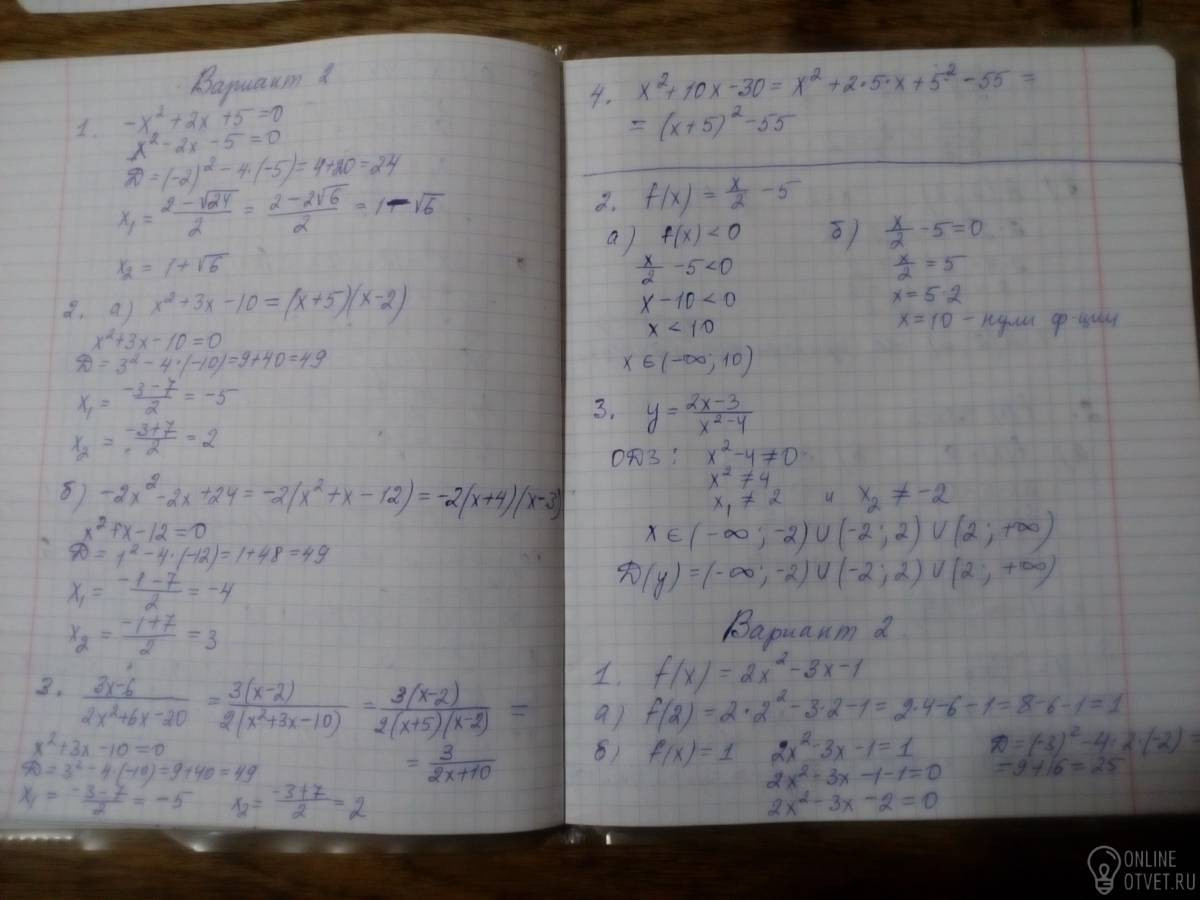 Вариант 2
1. -x² + 2x + 5 = 0
x² - 2x - 5 = 0
D = (-2)² - 4·(-5) = 4+20 = 24
x₁ = (2-√24)/2 = (2-2√6)/2 = 1-√6
x₂ = 1+√6
2. а) x²+3x-10 = (x+5)(x-2)
x²+3x-10=0
D = 3² - 4·(-10) = 9+40 = 49
x₁ = (-3-7)/2 = -5
x₂ = (-3+7)/2 = 2
б) -2x²-2x+24 = -2(x²+x-12) = -2(x+4)(x-3)
x²+x-12=0
D = 1²-4·(-12) = 1+48 = 49
x₁ = (-1-7)/2 = -4
x₂ = (-1+7)/2 = 3
3. (3x-6)/(2x²+6x-20) = 3(x-2)/(2(x²+3x-10)) = 3(x-2)/(2(x+5)(x-2)) =
= 3/(2x+10)
x²+3x-10=0
D = 3²-4·(-10) = 9+40 = 49
x₁ = (-3-7)/2 = -5 x₂ = (-3+7)/2 = 2
4. x²+10x-30 = x²+2·5·x+5²-55 =
= (x+5)²-55
2. f(x) = x/2 - 5
а) f(x)<0
x/2 - 5<0
x-10<0
x<10
x∈(-∞; 10)
б) x/2 - 5=0
x/2 = 5
x=5·2
x=10 - нули ф-ции
3. y = (2x-3)/(x²-4)
ОДЗ: x²-4≠0
x²≠4
x₁≠2 и x₂≠-2
x∈(-∞; -2)∪(-2; 2)∪(2; +∞)
D(y)=(-∞; -2)∪(-2; 2)∪(2; +∞)
Вариант 2
1. f(x) = 2x²-3x-1
а) f(2) = 2·2²-3·2-1 = 2·4-6-1 = 8-6-1 = 1
б) f(x)=1 2x²-3x-1=1
2x²-3x-1-1=0
2x²-3x-2=0
D=(-3)²-4·2·(-2)=
=9+16=25
ONLINE
OTVET.RU